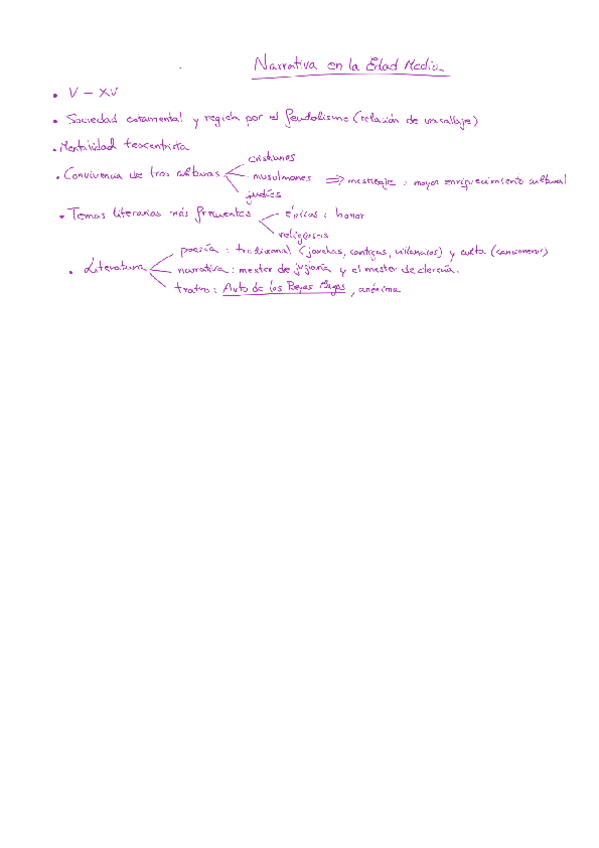 Narrativa en la Edad Media
• V – XV
• Sociedad estamental y regida por el feudalismo (relación de vasallaje)
• Mentalidad teocentrista
• Convivencia de tres culturas
cristianos
musulmanes ⇒ mestizaje : mayor enriquecimiento cultural
judíos
• Temas literarios más frecuentes
épicos : honor
religiosos
• Literatura
poesía : tradicional (jarchas, cantigas, villancicos) y culta (cancioneros)
narrativa : mester de juglaría y el mester de clerecía.
teatro : Auto de los Reyes Magos, anónima